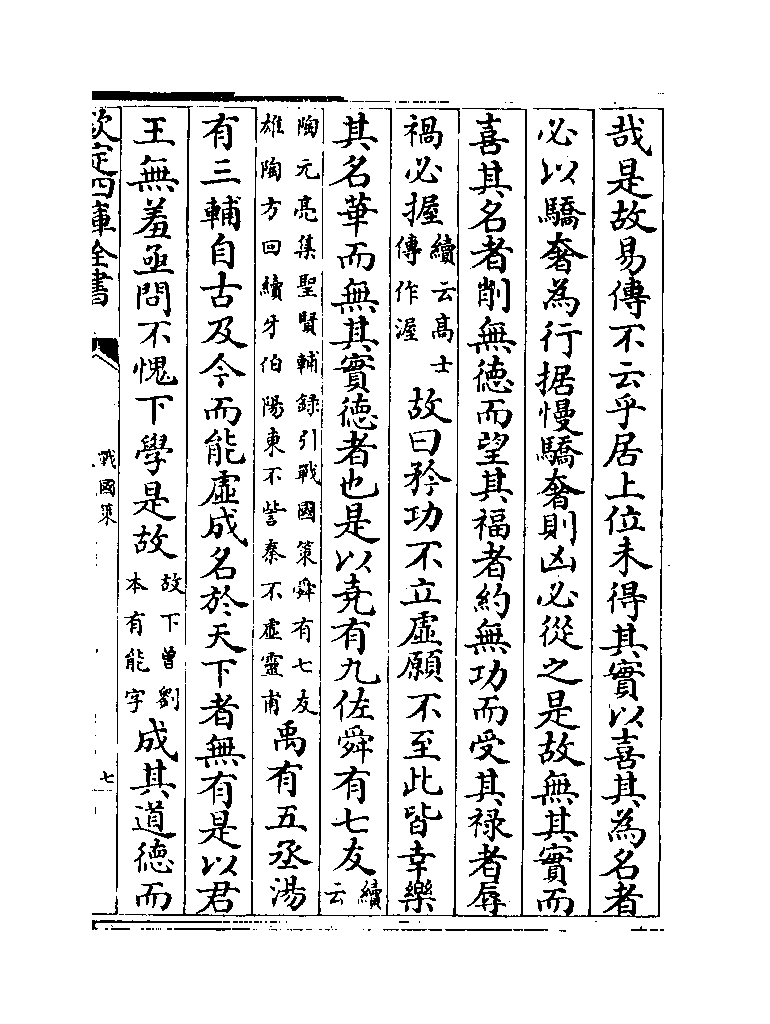 哉是故易傳不云乎居上位未得其實以喜其為名者
必以驕奢為行据慢驕奢則凶必從之是故無其實而
喜其名者削無德而望其福者約無功而受其禄者辱
禍必握續云髙士傳作渥故曰矜功不立虛願不至此皆幸樂
其名華而無其實德者也是以堯有九佐舜有七友續云
陶元亮集聖賢輔録引戰國策舜有七友雄陶方回續牙伯陽東不訾秦不虛靈甫禹有五丞湯
有三輔自古及今而能虛成名於天下者無有是以君
王無羞亟問不愧下學是故故下曾劉本有能字成其道德而
欽定四庫全書
戰國策
七